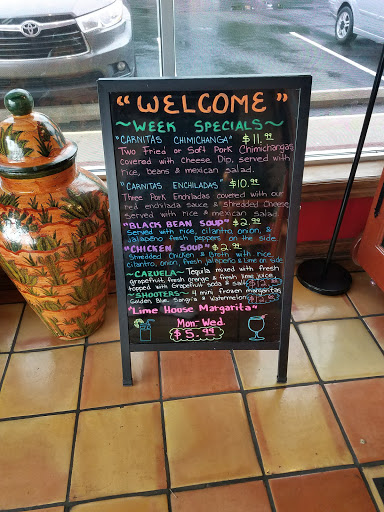 "WELCOME"
~WEEK SPECIALS~
"CARNITAS CHIMICHANGA" $11.99
Two Fried or Soft Pork Chimichangas
covered with Cheese Dip, served with
rice, beans & mexican salad.
"CARNITAS ENCHILADAS" $10.99
Three Pork Enchiladas covered with our
red enchilada sauce & Shredded Cheese
served with rice & mexican salad.
"BLACK BEAN SOUP" $2.99
Served with rice, cilantro, onion, &
jalapeño fresh peppers on the side.
"CHICKEN SOUP" $2.99
Shredded Chicken & Broth with rice,
cilantro, onion, fresh jalapeño & Lime on side
~CAZUELA~ Tequila mixed with fresh
grapefruit, fresh orange & fresh lime juice
topped with Grapefruit soda & salt
~SHOOTERS~ 4 mini frozen margaritas
Golden, Blue, Sangria & Watermelon
"Lime House Margarita"
Mon-Wed
$5.99